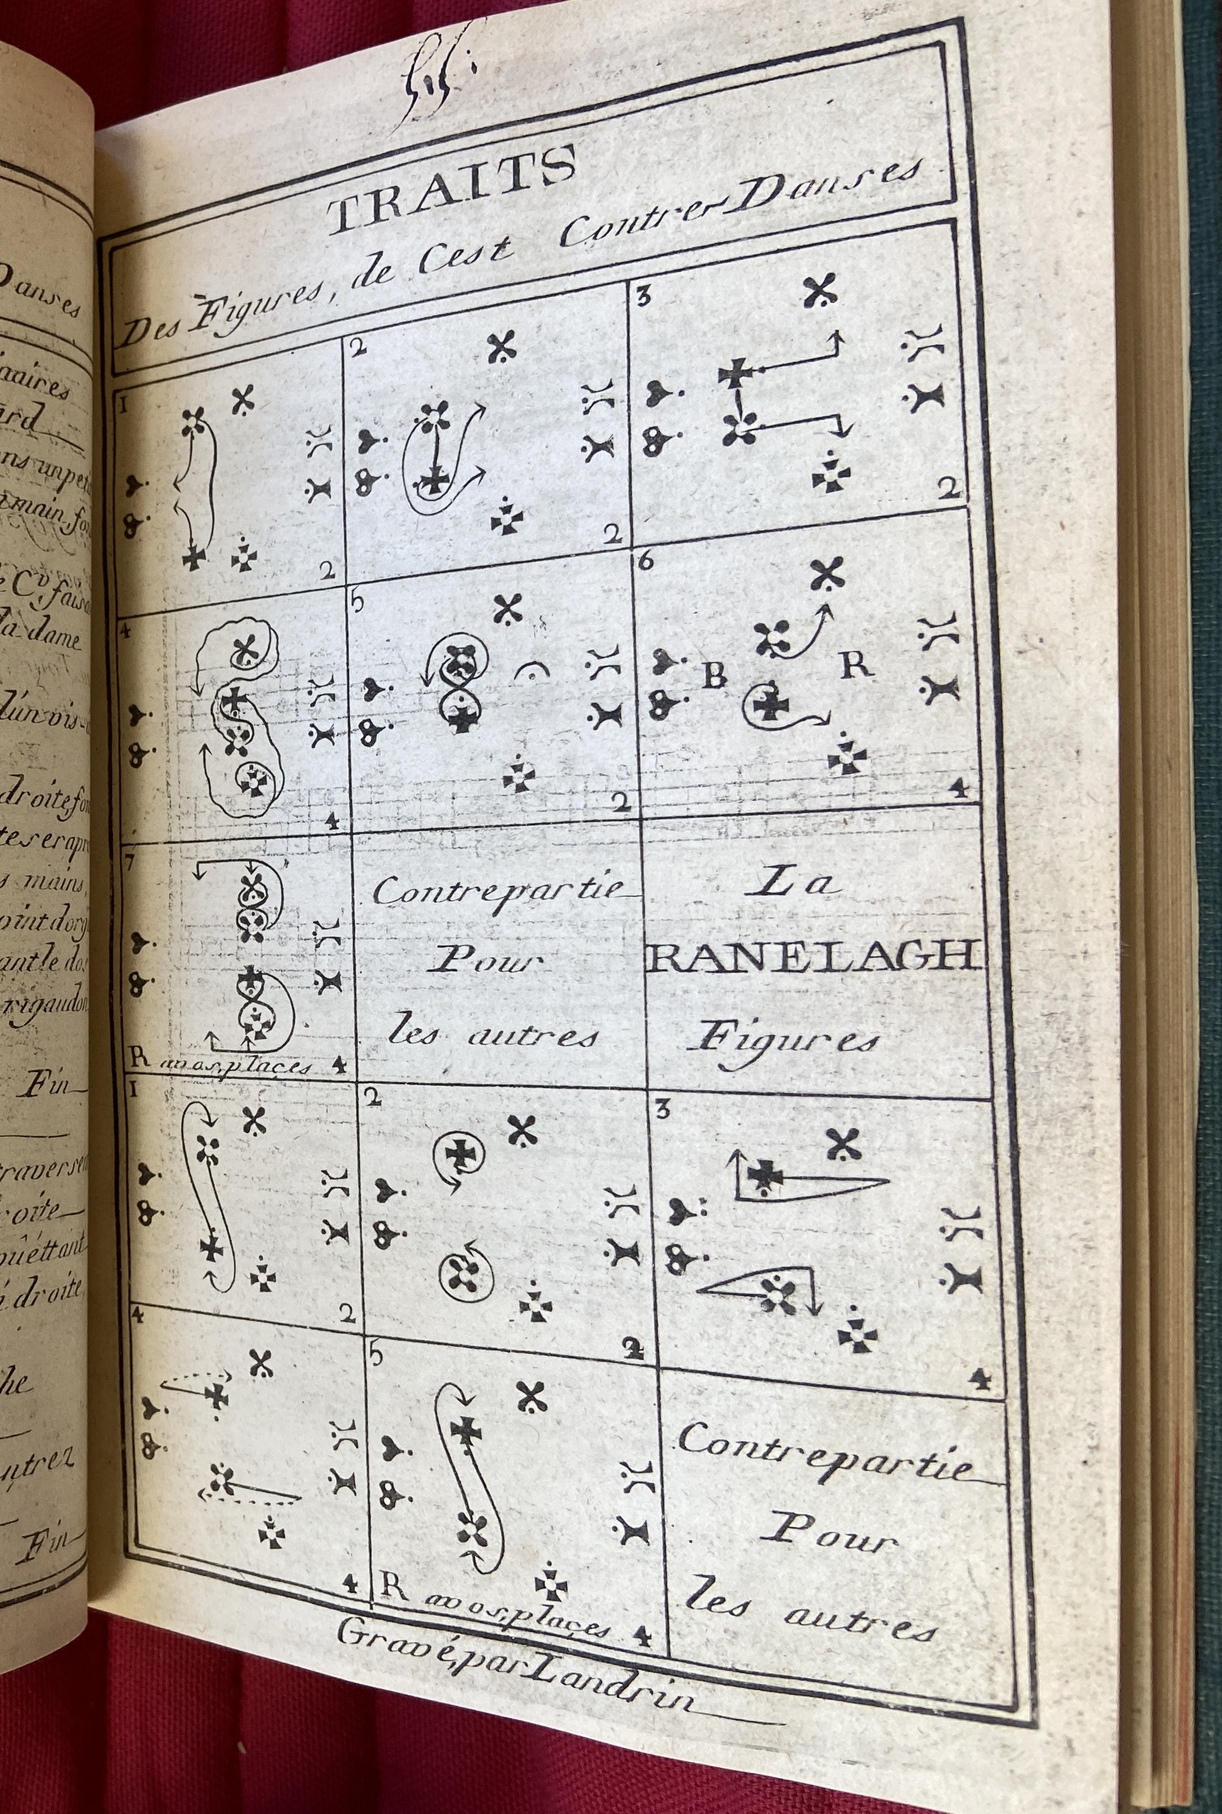 TRAITS
Des Figures, de Cest Contrer Danses
1
2
2
2
3
2
4
4
5
2
6
B
R
4
7
R avos, places 4
Contrepartie
Pour
les autres
La
RANELAGH
Figures
1
2
2
2
3
4
4
4
5
R avos, places 4
Contrepartie
Pour
les autres
Gravé, par Landrin
Danses
ard
ns unpe
main, fo
e C.^r, fais
la dame
d'un vis-
droite fo
tes erapr
s mains,
oint dorg
ant le dos
rigaudon
Fin
traversen
roite
ouéttant
à droite,
he
ntrez
Fin